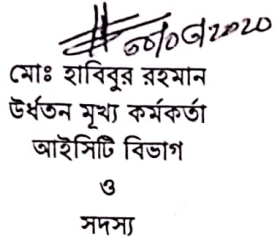 মোঃ হাবিবুর রহমান
উর্ধতন মূখ্য কর্মকর্তা
আইসিটি বিভাগ
ও
সদস্য